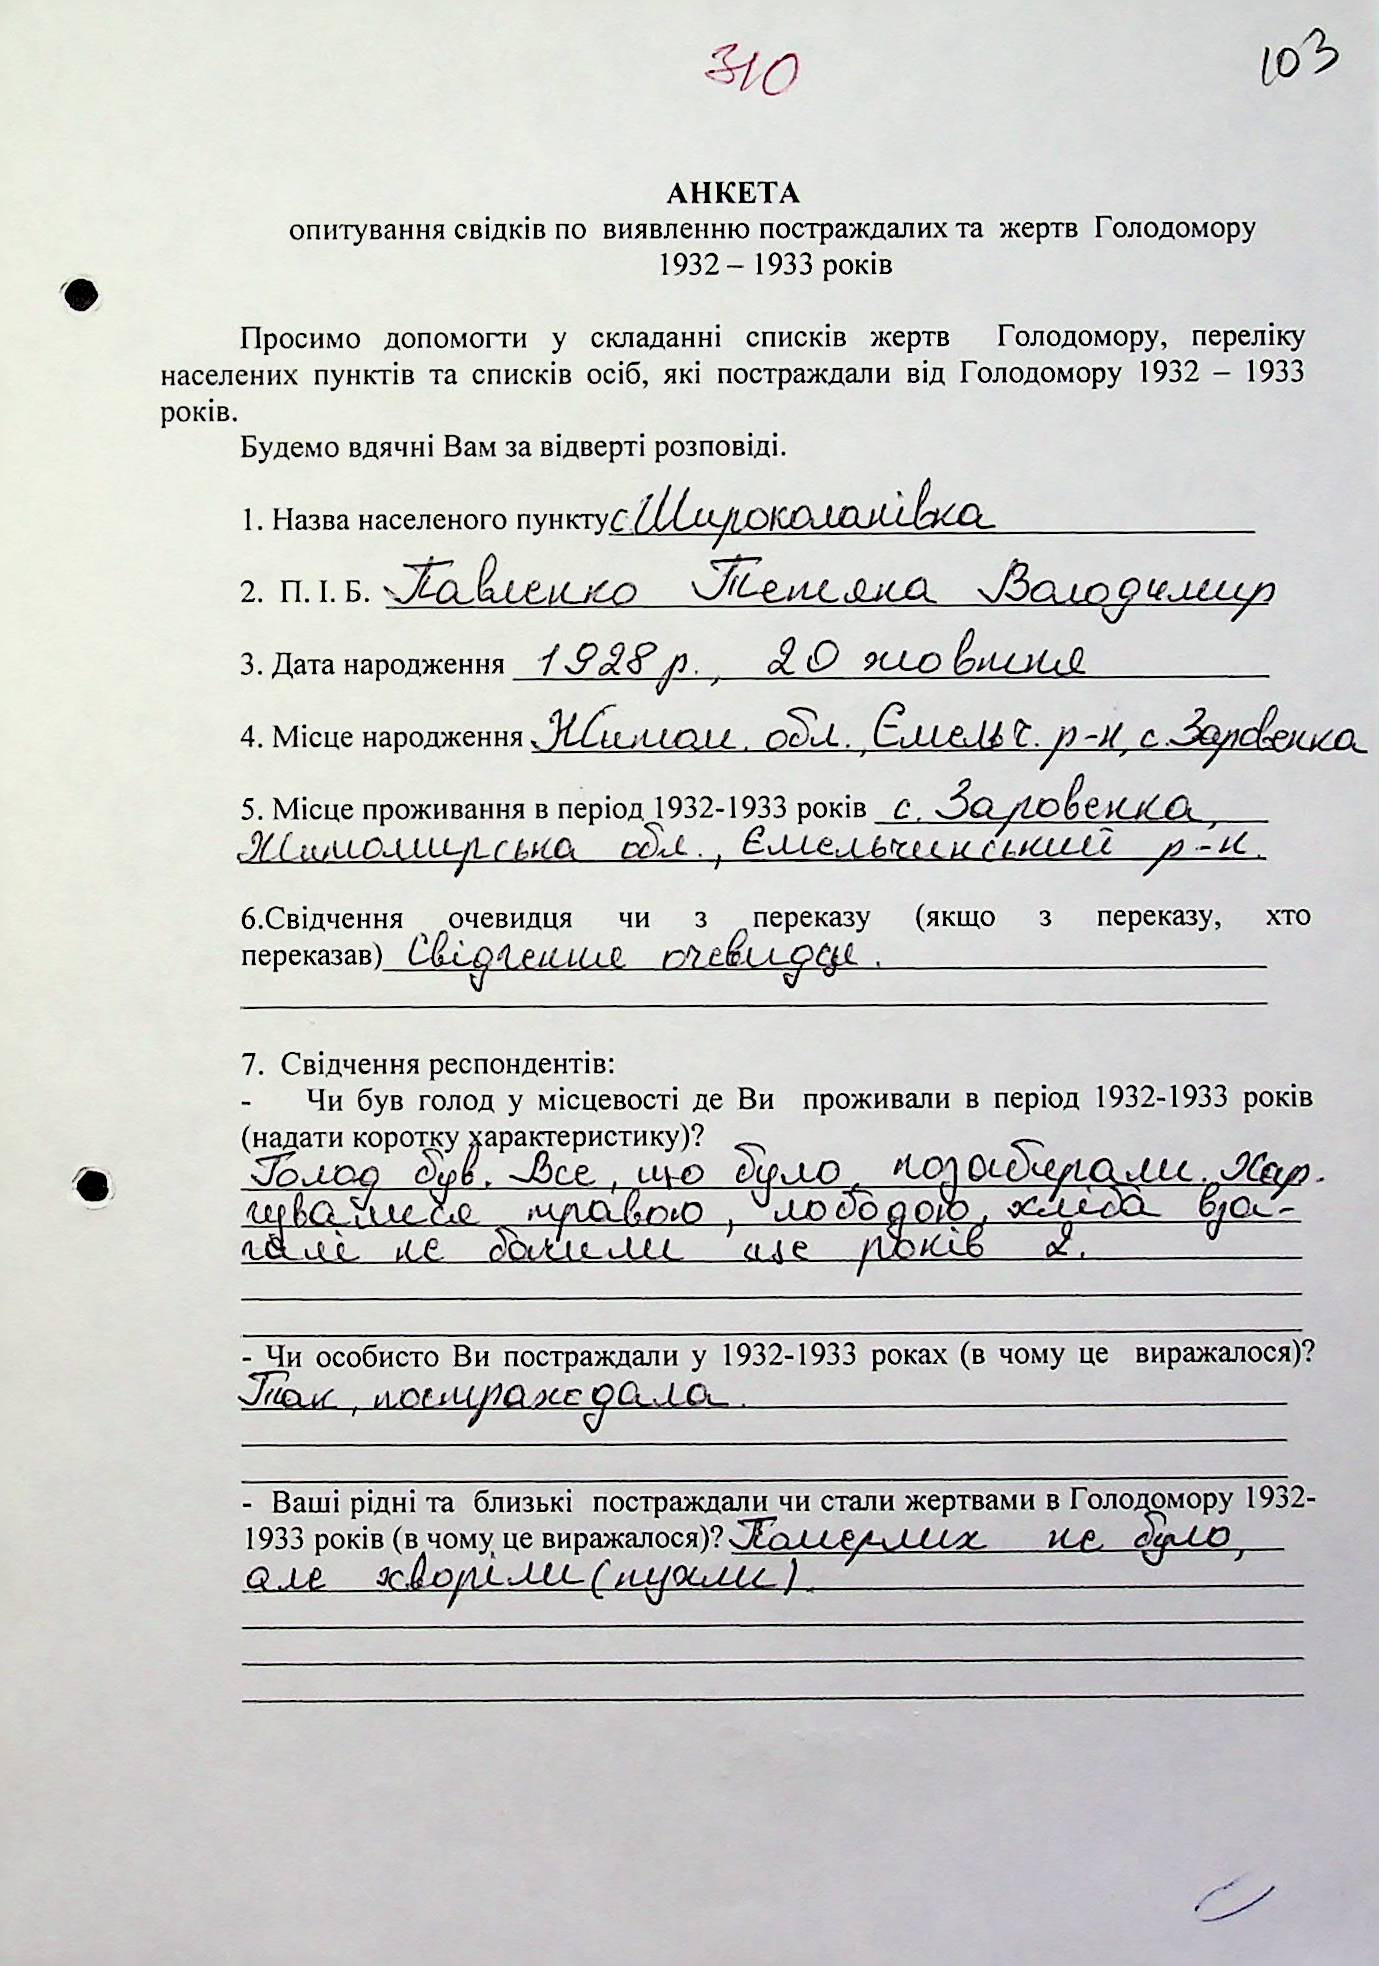 310
103
АНКЕТА
опитування свідків по виявленню постраждалих та жертв Голодомору
1932 – 1933 років
Просимо допомогти у складанні списків жертв Голодомору, переліку
населених пунктів та списків осіб, які постраждали від Голодомору 1932 – 1933
років.
Будемо вдячні Вам за відверті розповіді.
1. Назва населеного пункту с. Широколанівка
2. П. І. Б. Павленко Тетяна Володимир
3. Дата народження 1928 р., 20 жовтня
4. Місце народження Житом. обл., Ємельч. р-н, с. Заровенка
5. Місце проживання в період 1932-1933 років с. Заровенка,
Житомирська обл., Ємельчинський р-н.
6.Свідчення очевидця чи з переказу (якщо з переказу, хто
переказав) Свідчення очевидця.
7. Свідчення респондентів:
- Чи був голод у місцевості де Ви проживали в період 1932-1933 років
(надати коротку характеристику)?
Голод був. Все, що було, позабирали. Хар-
чувалися травою, лободою, хліба вза-
галі не бачили ще років 2.
- Чи особисто Ви постраждали у 1932-1933 роках (в чому це виражалося)?
Так, постраждала.
- Ваші рідні та близькі постраждали чи стали жертвами в Голодомору 1932-
1933 років (в чому це виражалося)? Померлих не було,
але хворіли (пухли).